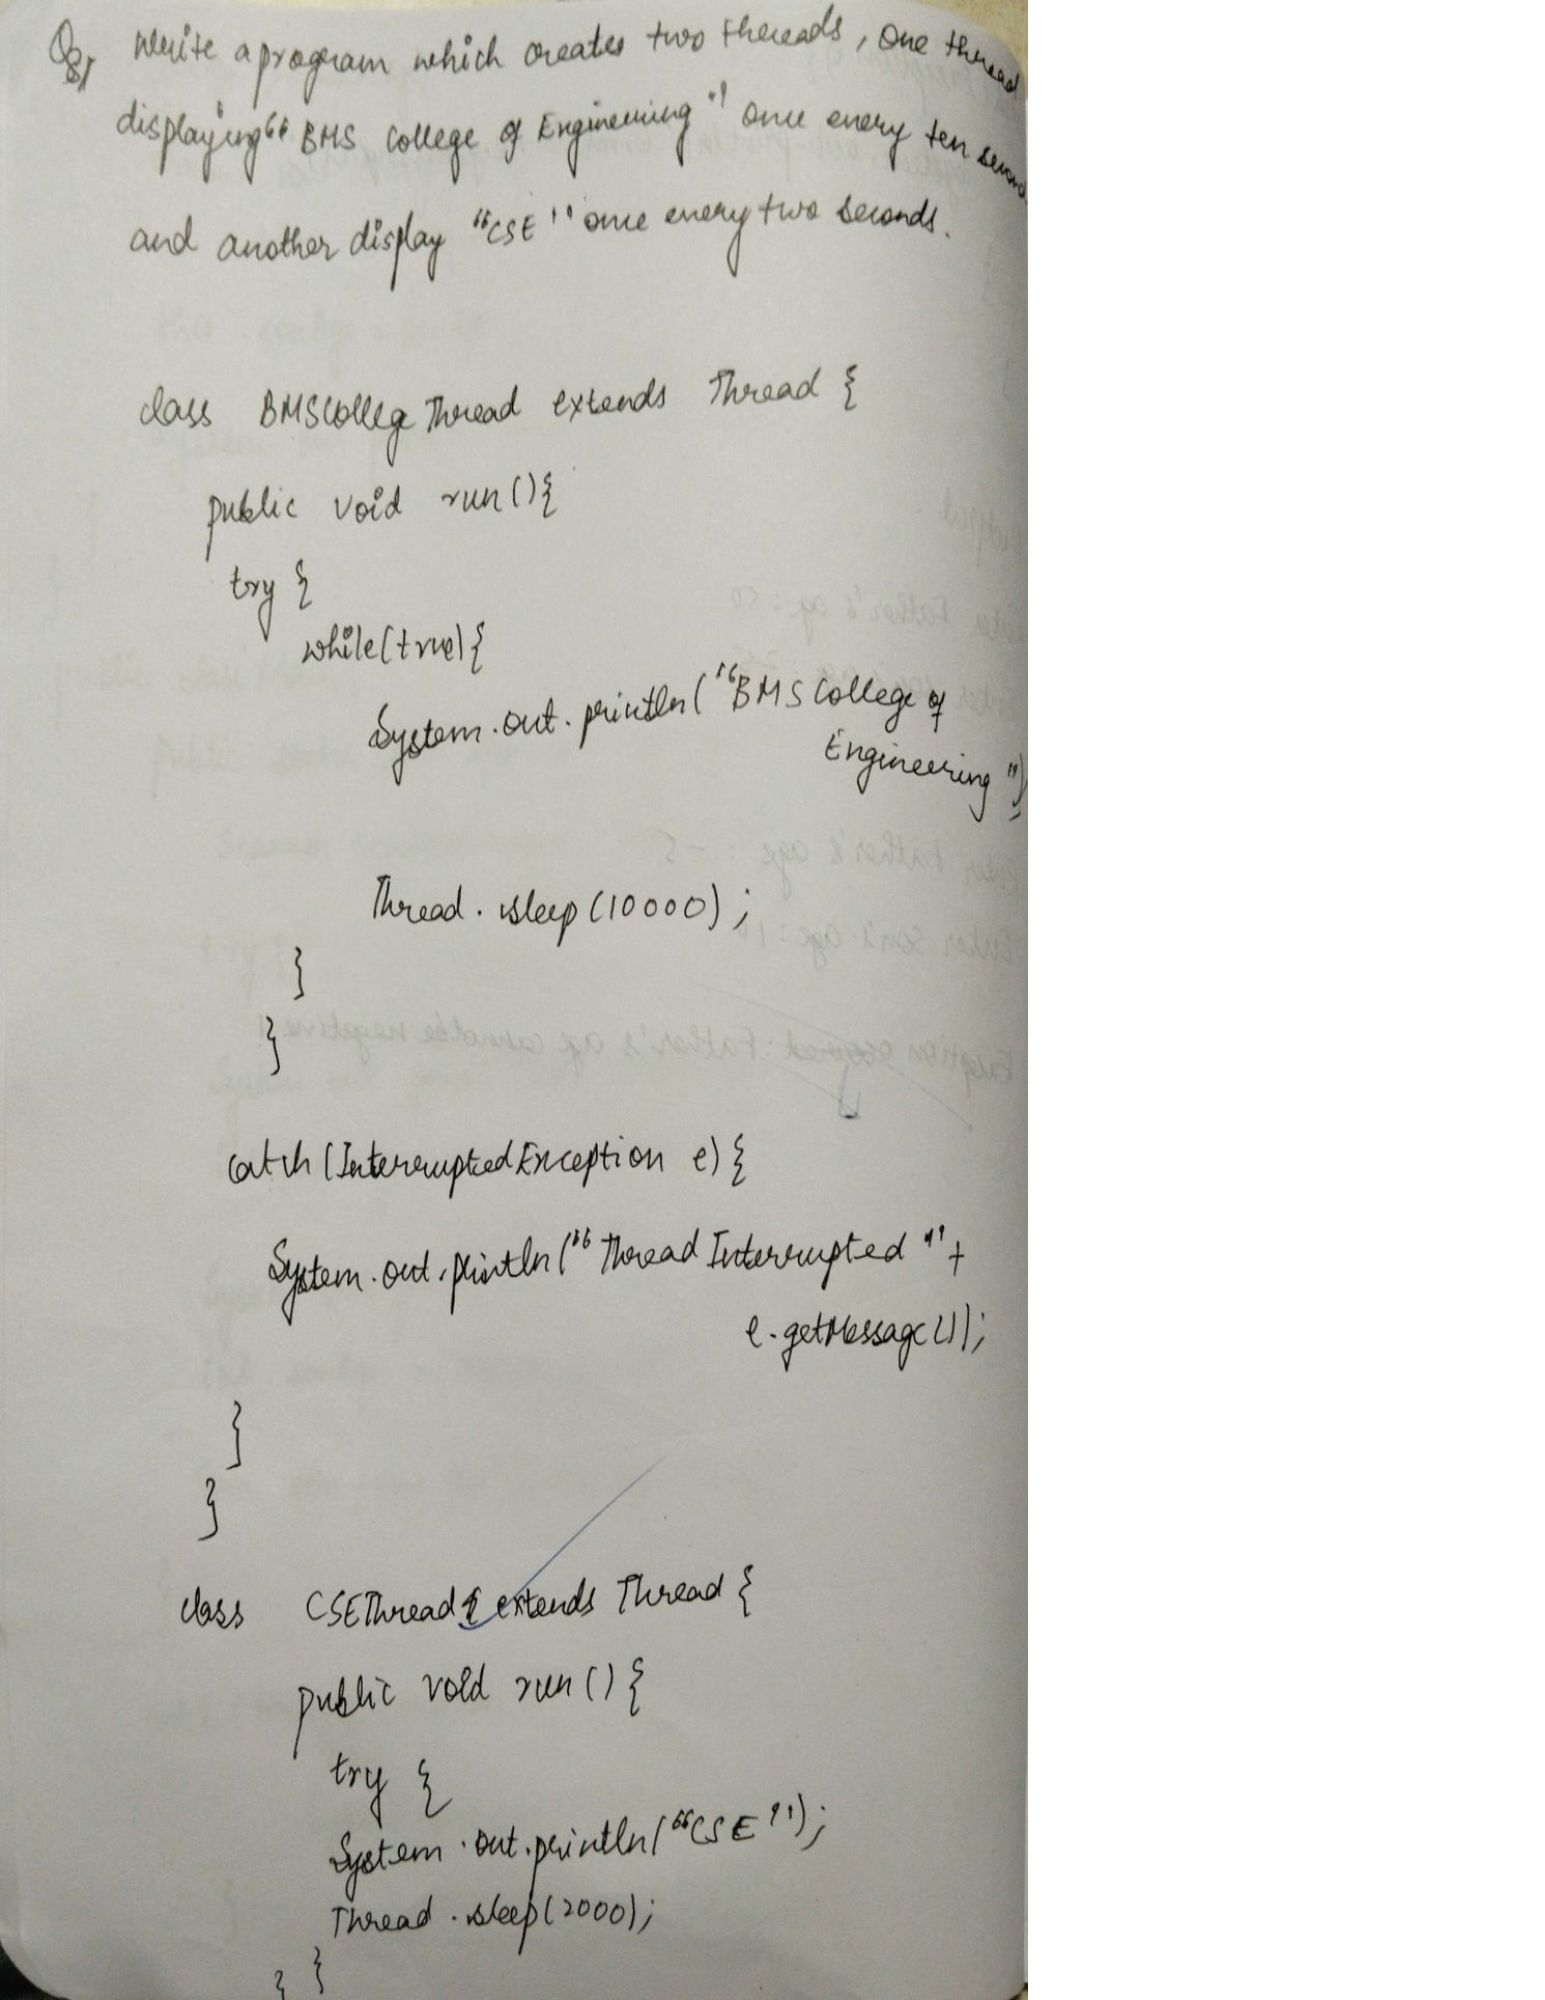 Q8/ Write a program which creates two threads, one thread
displaying "BMS College of Engineering" once every ten second
and another display "CSE" once every two seconds.
class BMSCollegeThread extends Thread {
public void run(){
try {
while(true){
System.out.println("BMS College of
Engineering");
Thread.sleep(10000);
}
}
catch (InterruptedException e) {
System.out.println("Thread Interrupted"+
e.getMessage());
}
}
class CSEThread extends Thread {
public void run() {
try {
System.out.println("CSE");
Thread.sleep(2000);
} }